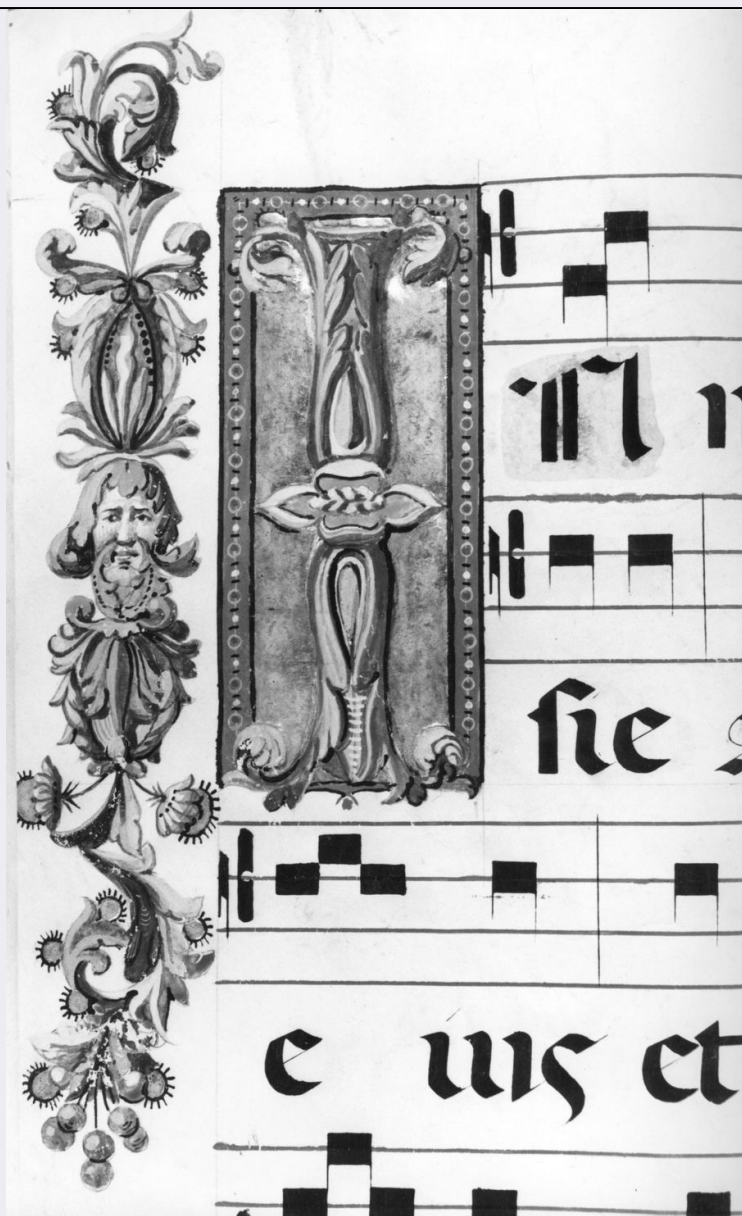 IN
ſie
e ius et